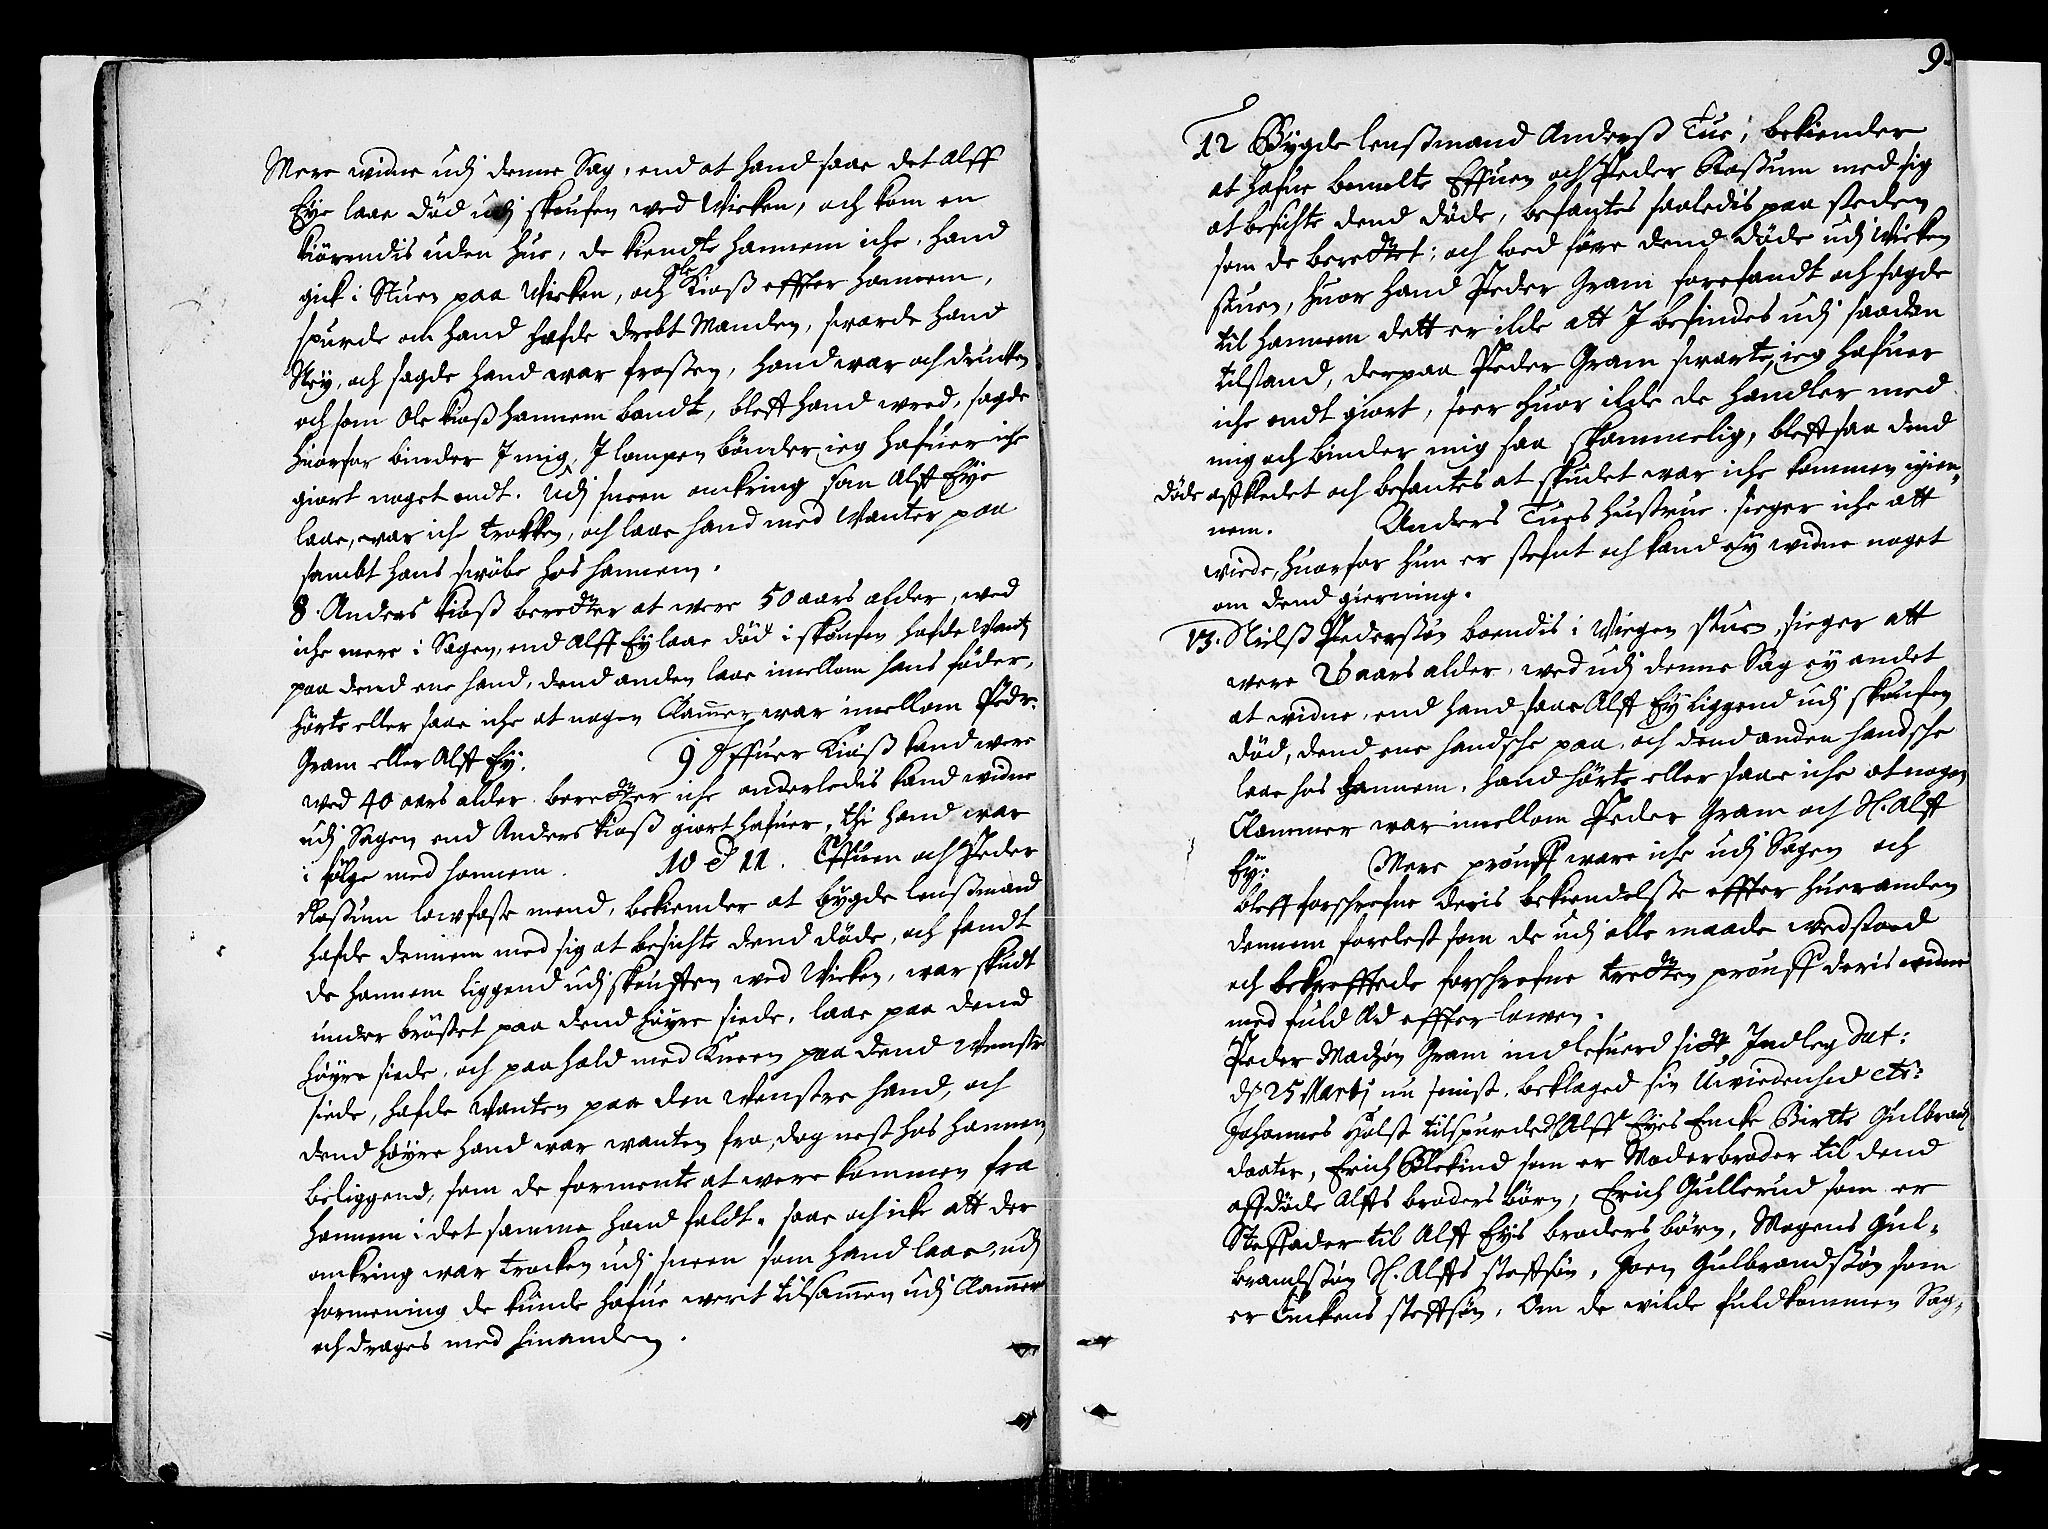 Mere widne udj denne Sag, end at hand saae det Alff
Eye laae død udj skoufen wed Wieken, och kom en
kiörendis uden hue, de kiendte hannem iche, hand
gick i Stuen paa Wieken, och Ole Kioß effter hannem,
spurde om hand hafde drebt Manden, swarde hand
Ney, och sagde hand war froßen, hand war och drucken
och som Ole kioß hannem bandt, bleff hand wred, sagde
huorfor binder J mig, J lompen bönder, ieg hafuer iche
giort noget ondt. Udj sneen omkring som Alff Eye
laae, war iche trokken, och laae hand med Wanter paa
sambt hans swöbe hos hannem.
8. Anders kioß beretter at were 50 aars alder, wed
iche mere i Sagen, end Alff Ey laae död i skoufen hafde Want
paa dend ene hand, dend anden laae imellom hans föder,
hörte eller saae iche at nogen Clammer war imellom Peder
Gram eller Alff Ey. 9 Iffuer Kioß kand were
wed 40 aars alder beretter iche anderledis kand widne
udj Sagen end Anders kioß giort hafuer, thi hand war
i fölge med hannem. 10 & 11. Effuen och Peder
Roßum lowfaste mend, bekiender at bygde lenßmand
hafde dennem med sig at besichte dend döde, och fandt
de hannem liggend udj skouffen wed Wieken, war skudt
under bröstet paa dend höyre siede, laae paa dend
höyre siede, och paa hald med Kneen paa dend Wenstre
siede, hafde Wanten paa den Wenstre hand, och
dend höyre hand war wanten fra, dog nest hos hannem
beliggend, som de formente at were kommen fra
hannem i det samme hand faldt. saae och icke att der
omkring war trocken udj sneen som hand laae, udj
formening de kunde hafue wert tilsammen udj Clammer
och drages med hinanden.
9.
12 Bygde lenßmand Anderß Tue, bekiender
at hafue bemelte Effuen och Peder Roßum med sig
at besichte dend döde, befantes saaledis paa steden
som de berettet; och loed före dend döde udj Wieken
stuen, huor hand Peder Gram forefandt och sagde
til hannem dett er ilde att J befindes udj saadan
tilstand, derpaa Peder Gram swarte, ieg hafuer
iche ondt giort, seer huor ilde de handler med
mig och binder mig saa skammelig, bleff saa dend
döde affkledet och befantes at skudet war iche kommen igien-
nem. Anders Tues hustrue sieger iche att
wiede, huorfor hun er stefnt och kand ey widne noget
om dend gierning.
13. Nielß Pederßön boendis i Wiegen stuen, sieger att
were 26 aars alder, wed udj denne Sag ey andet
at widne, end hand saae Alff Ey liggend udj skoufen
död, dend ene handsche paa, och dend anden handsche
laae hos hannem, hand hörte eller saae iche at nogen
Clammer war imellom Peder Gram och S. Alff
Ey: Mere prouff ware iche udj Sagen och
bleff forschrefne deris bekiendelße effter hueranden
dennem forelest som de udj alle maade wedstoed
och bekrefftede forschrefne tretten prouff deris widne
med fuld Æd effter lowen.
Peder Madzön Gram indlefuerd sidt Indleg dat:
d 25 Martj nu senist, beklaged sin Uwiedenhed etc:
Johannes Holst tilspurde S. Alff Eyes Encke Birte Gulbrands
daater, Erich Blekind som er Moderbroder til dend
affdöde Alffs broders börn, Erich Gullerud som er
Steffader til Alff Eyis broders börn, Mogens Gul-
brandßön S. Alffs steffsön, Joen Gulbrandßön som
er Enckens steffsön, Om de wilde fuldkommen Sag-